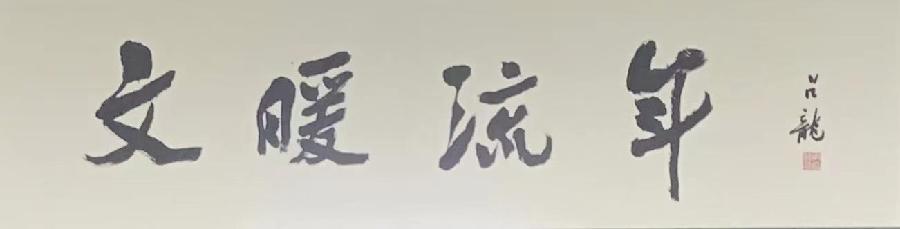 文暖流年
吕龍